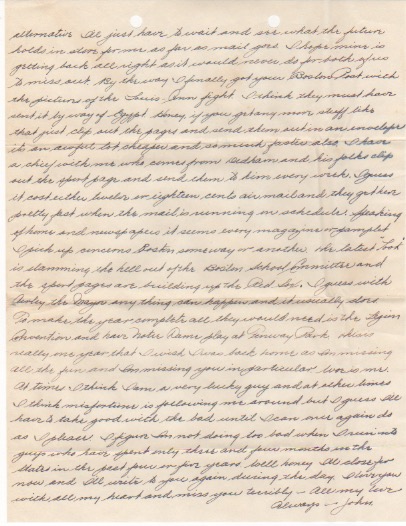 alternative. I'll just have to wait and see what the future
holds in store for me as far as mail goes. I hope mine is
getting back all right as it would never do for both of us
to miss out. By the way I finally got your Boston Post with
the pictures of the Louis Conn fight. I think they must have
sent it by way of Egypt. Honey if you get any more stuff like
that just clip out the pages and send them out in an envelope
it's an awful lot cheaper and so much faster also. I have
a chief with me who comes from Dedham and his folks clip
out the sport page and send them to him every week. I guess
it cost either twelve or eighteen cents air mail and they get here
pretty fast when the mail is running on schedule. Speaking
of home and newspapers it seems every magazine or pamphlet
I pick up concerns Boston someway or another. The latest "Look"
is slamming the hell out of the Boston School Committee and
the sport pages are building up the Red Sox. I guess with
Curley the Mayor anything can happen and it usually does.
To make the year complete all they would need is the Legion
Convention and have Notre Dame play at Fenway Park. This is
really one year that I wish I was back home as I'm missing
all the fun and I'm missing you in particular. Woe is me.
At times I think I am a very lucky guy and at other times
I think misfortune is following me around but I guess I'll
have to take good with the bad until I can once again do
as I please. I figure I'm not doing too bad when I run into
guys who have spent only three and four months in the
States in the past four or five years. Well honey I'll close for
now and I'll write to you again during the day. I love you
with all my heart and miss you terribly - All my love
Always - John